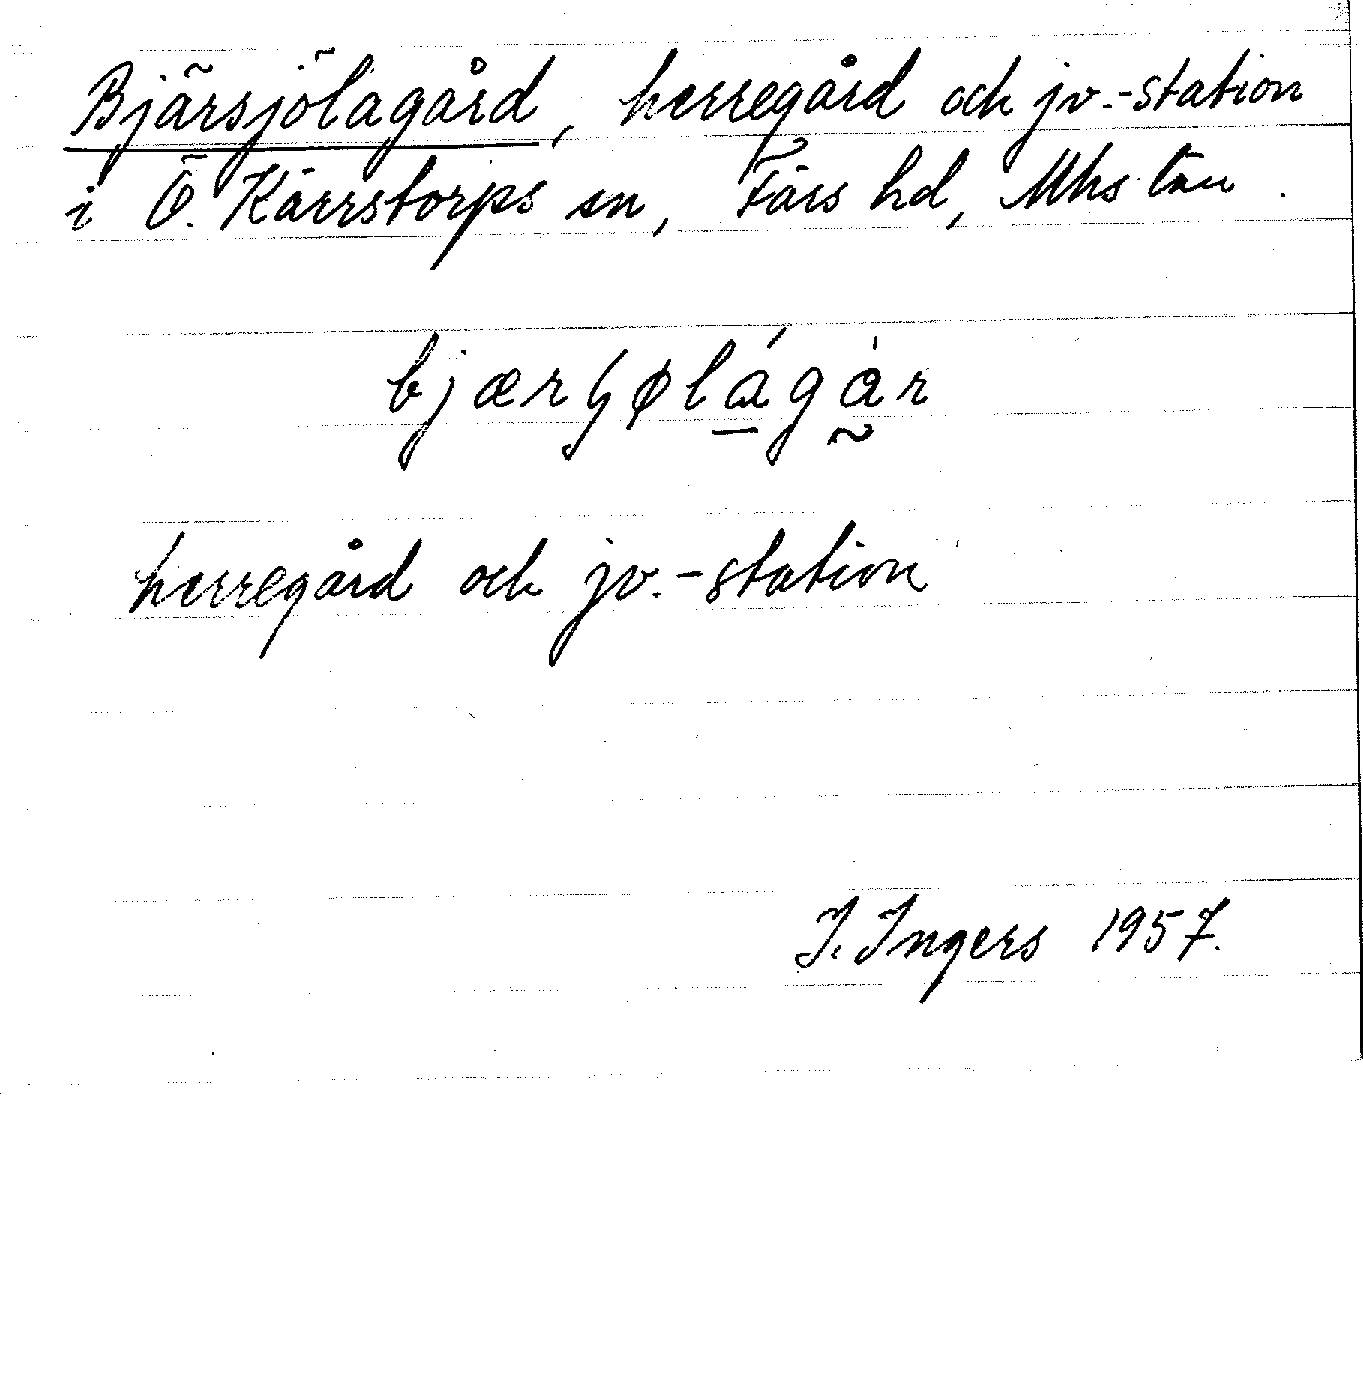 Bjärsjölagård, herregård och jv.-station
i Ö. Kärrstorps sn, Färs hd, Mhs län.
bjærʂølágàr
herregård och jv.-station
I. Ingers 1957.